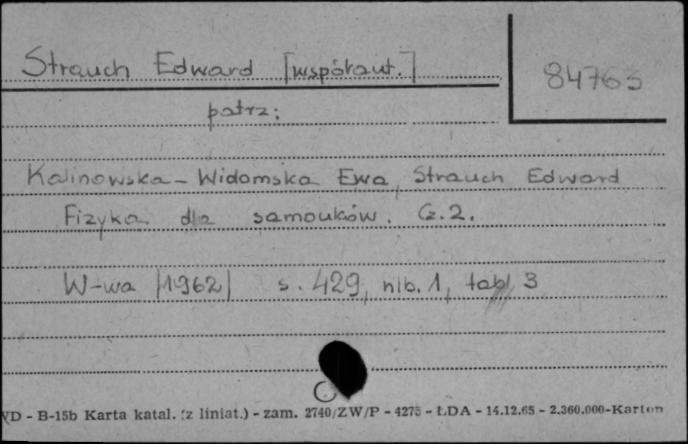 Strauch Edward [współaut.]
84763
patrz:
Kalinowska-Widomska Ewa, Strauch Edward
Fizyka dla samouków. Cz.2.
W-wa |1962| s. 429, nlb. 1, tabl 3
VD - B-15b Karta katal. (z liniat.) - zam. 2740/ZW/P - 4275 - ŁDA - 14.12.65 - 2.360.000-Karton